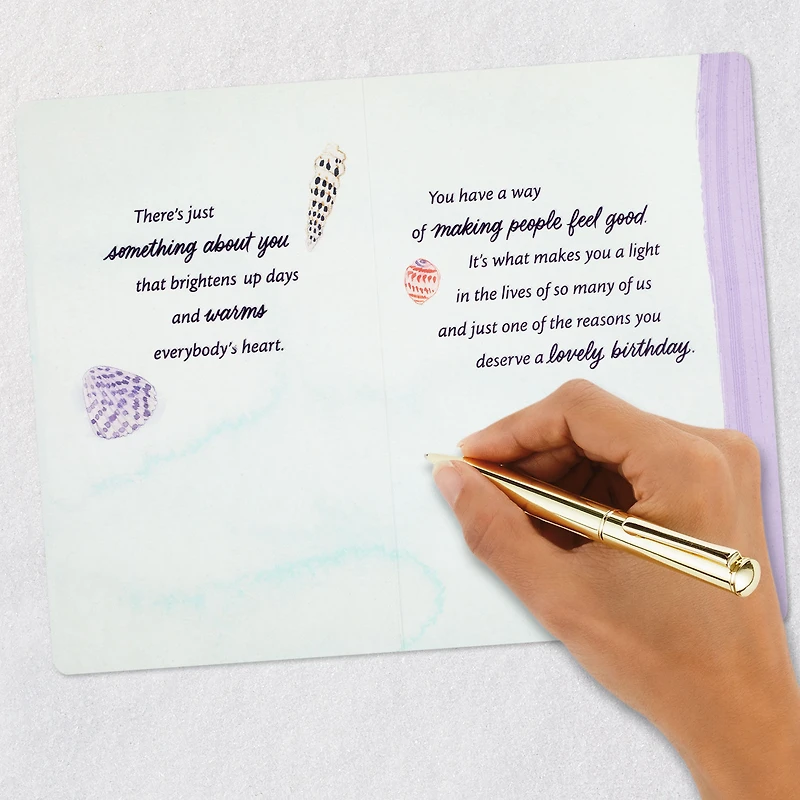 There's just
something about you
that brightens up days
and warms
everybody's heart.
You have a way
of making people feel good.
It's what makes you a light
in the lives of so many of us
and just one of the reasons you
deserve a lovely birthday.